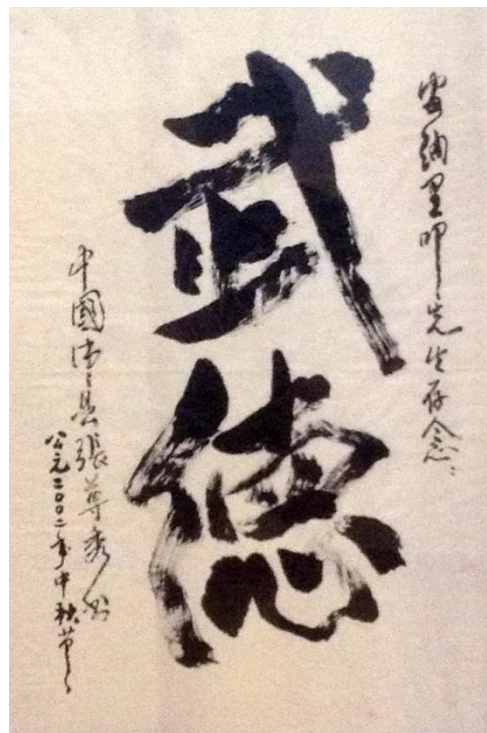 安納里叩先生存念
武德
中國沛县張尊秀
公元二〇〇二年中秋节